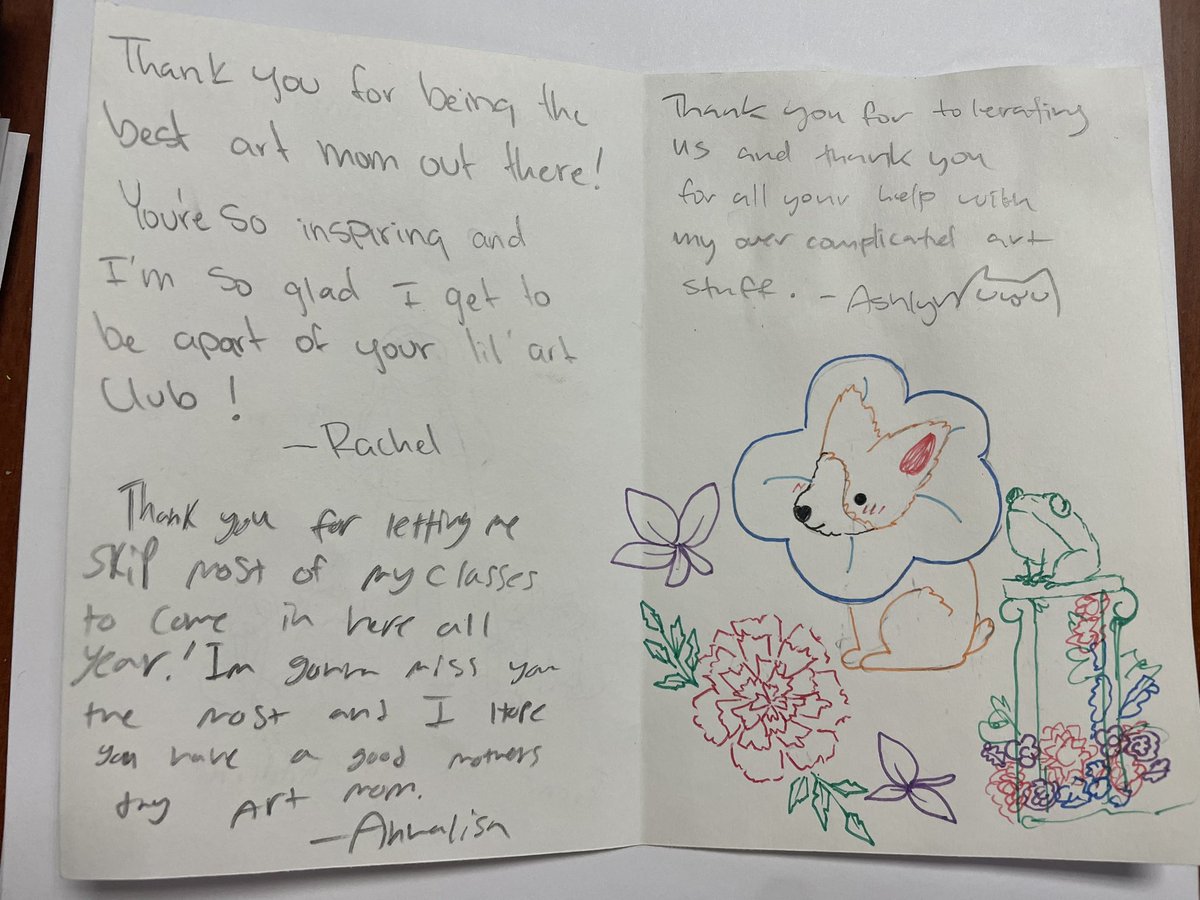 Thank you for being the
best art mom out there!
You're so inspiring and
I'm so glad I get to
be apart of your lil' art
Club!
—Rachel
Thank you for letting me
skip most of my classes
to come in here all
year! Im gonna miss you
the most and I Hope
you have a good mothers
day Art mom.
—Annalisa
Thank you for tolerating
us and thank you
for all your help with
my over complicated art
stuff. -Ashlyn